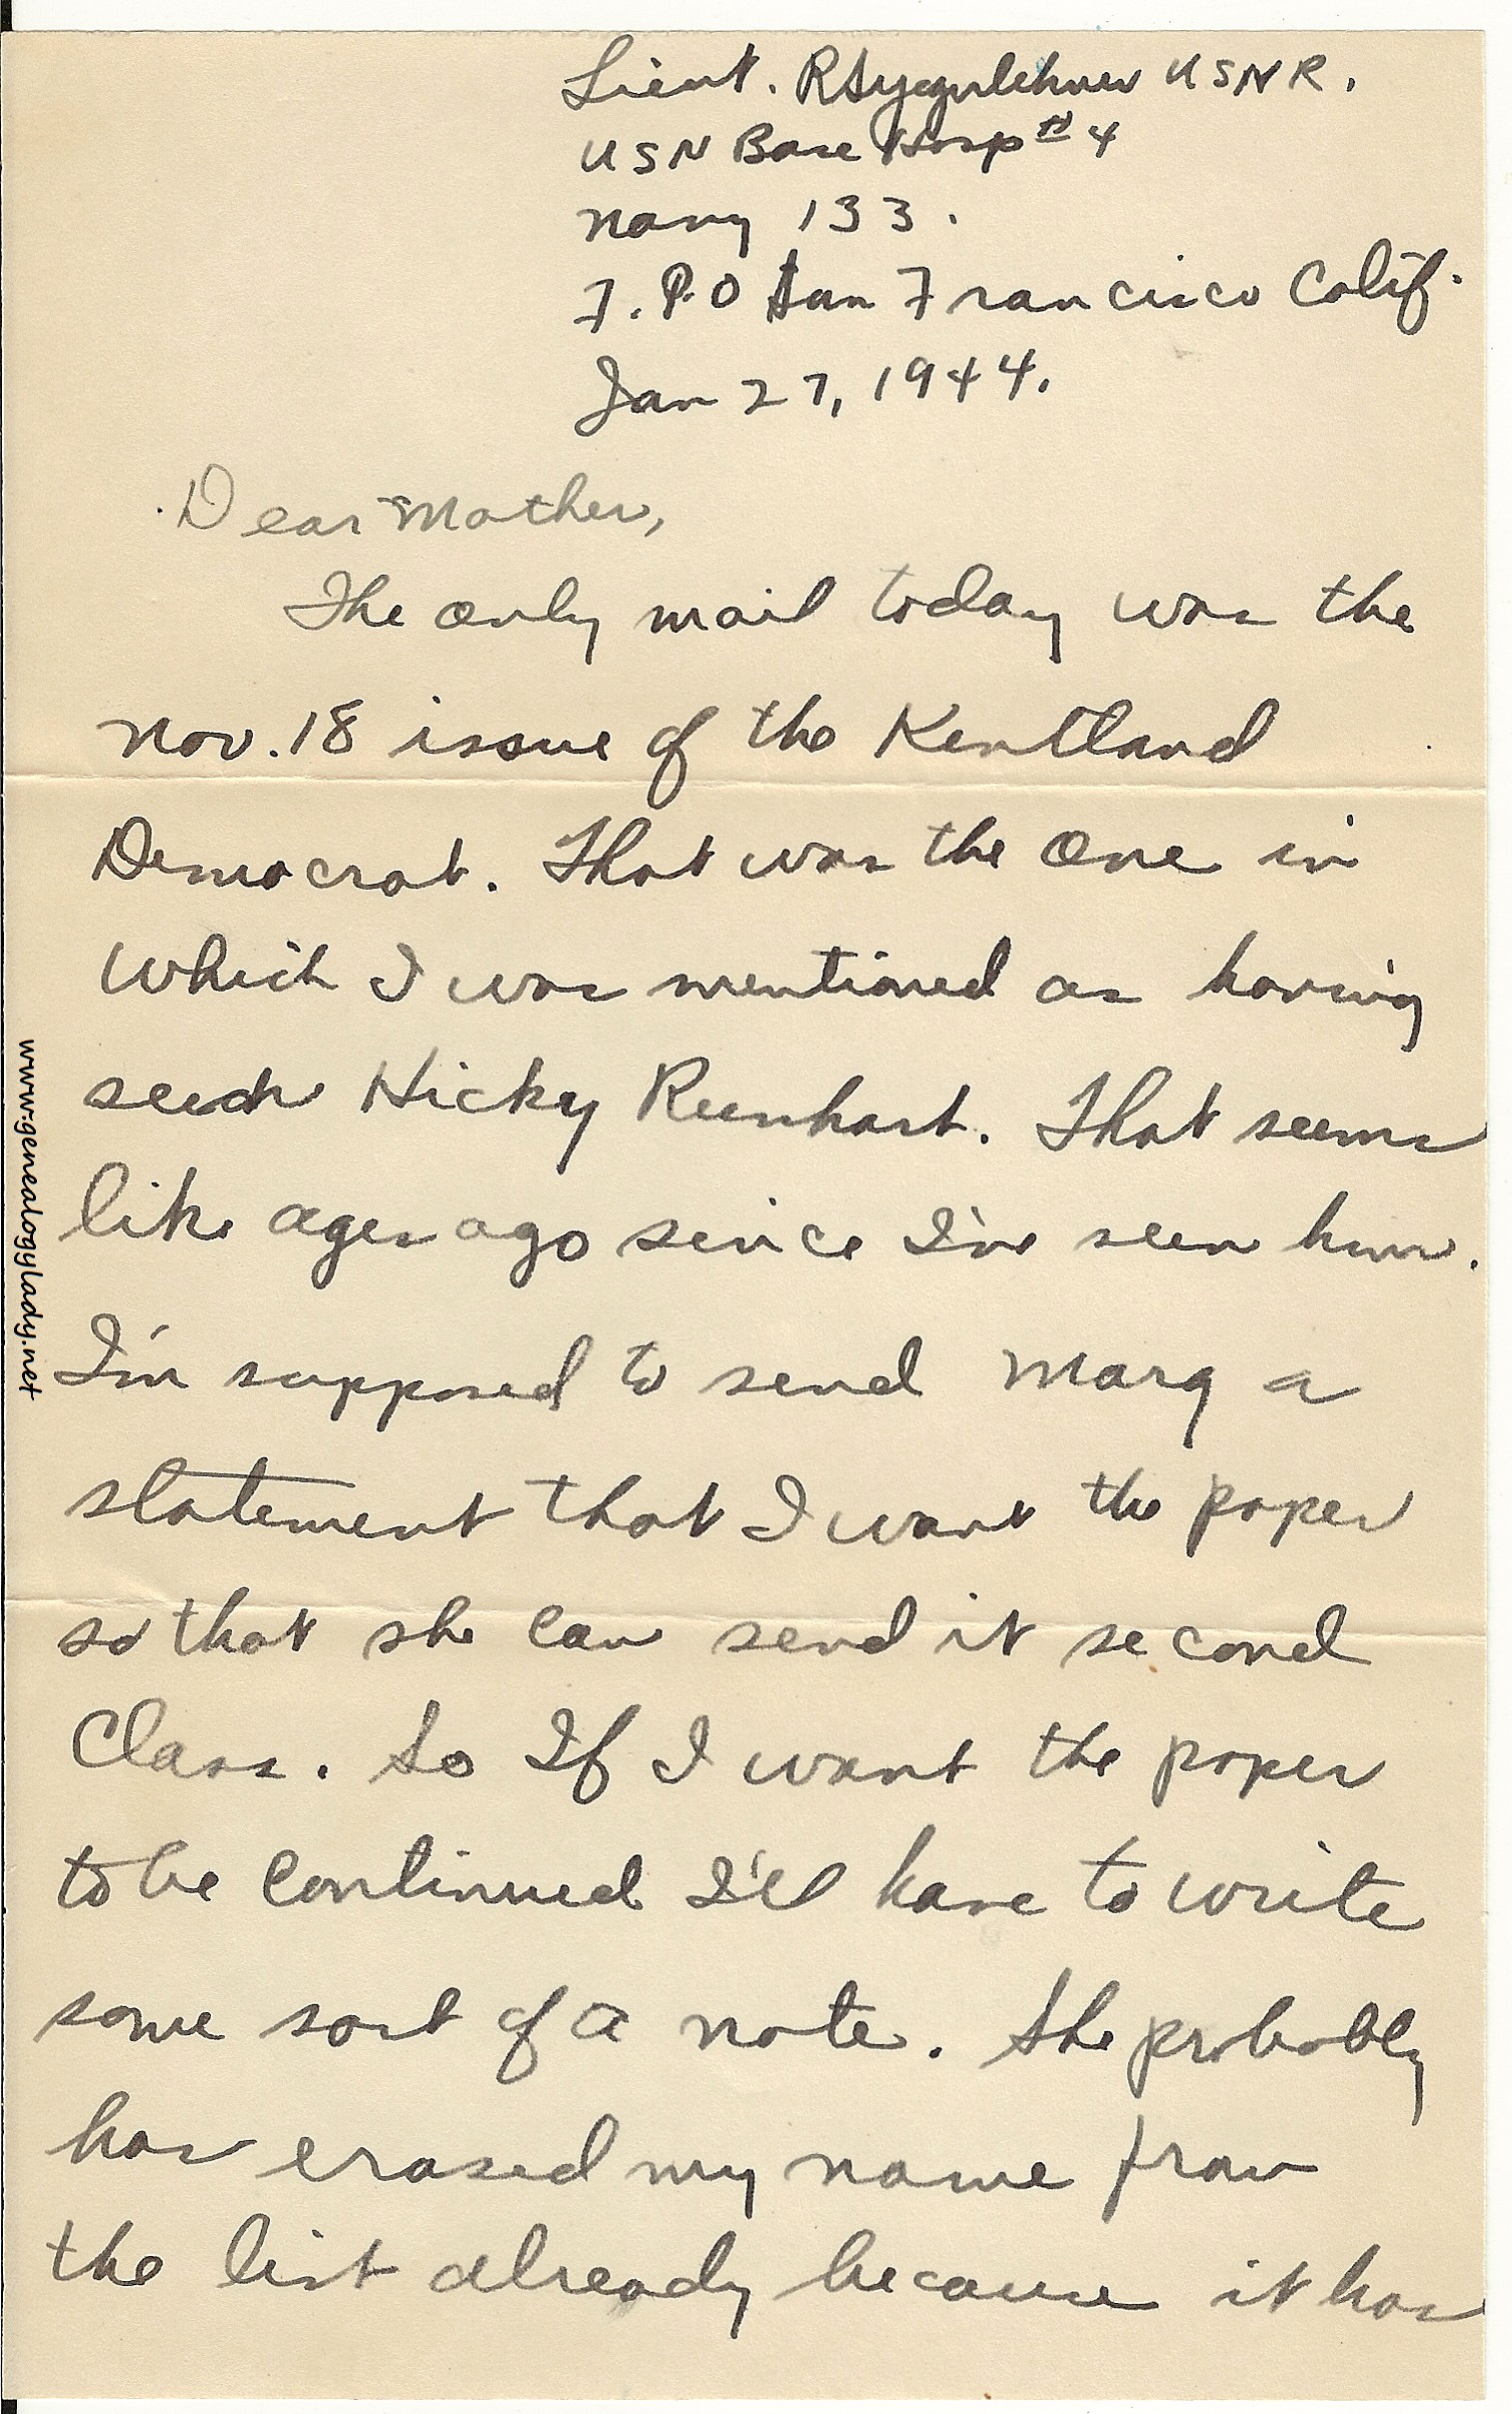 Lieut. RSYegerlehner USNR.
USN Base Hosp # 4
Navy 133.
F.P.O San Francisco Calif.
Jan 27, 1944.
Dear Mother,
The only mail today was the
Nov. 18 issue of the Kentland
Democrat. That was the one in
which I was mentioned as having
seen Hicky Reinhart. That seems
like ages ago since I've seen him.
I'm supposed to send Marg a
statement that I want the paper
so that she can send it second
Class. So If I want the paper
to be continued I'll have to write
some sort of a note. She probably
has erased my name from
the list already because it has
www.genealogylady.net